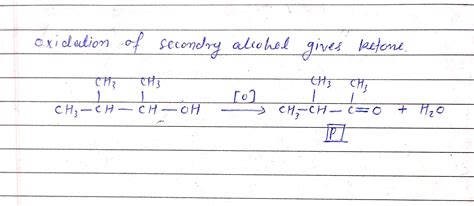 oxidation of secondry alcohol gives ketone.
CH3 CH3 CH3 CH3
CH3-CH-CH-OH [O] → CH3-CH-C=O + H2O
P